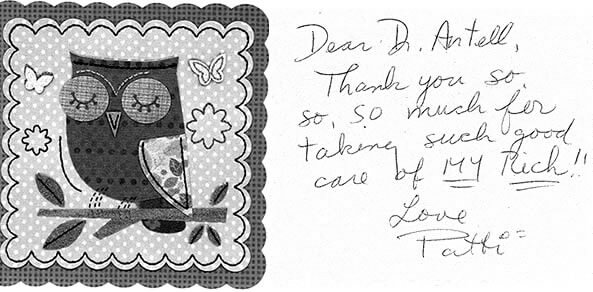 Dear Dr. Antell,
Thank you so,
so, so much for
taking such good
care of MY Rich!!
Love
Patti